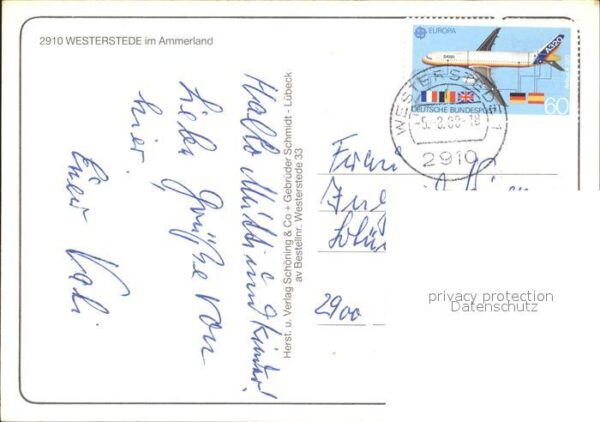 2910 WESTERSTEDE im Ammerland
EUROPA
A320
60
DEUTSCHE BUNDESPOST
WESTERSTEDE 1
-5.8.88-18
2910
Hallo Mutti und Kinder!
Liebe Grüße von
hier.
Herst. u. Verlag Schöning & Co + Gebrüder Schmidt - Lübeck
av Bestellnr. Westerstede 33
2900
privacy protection
Datenschutz